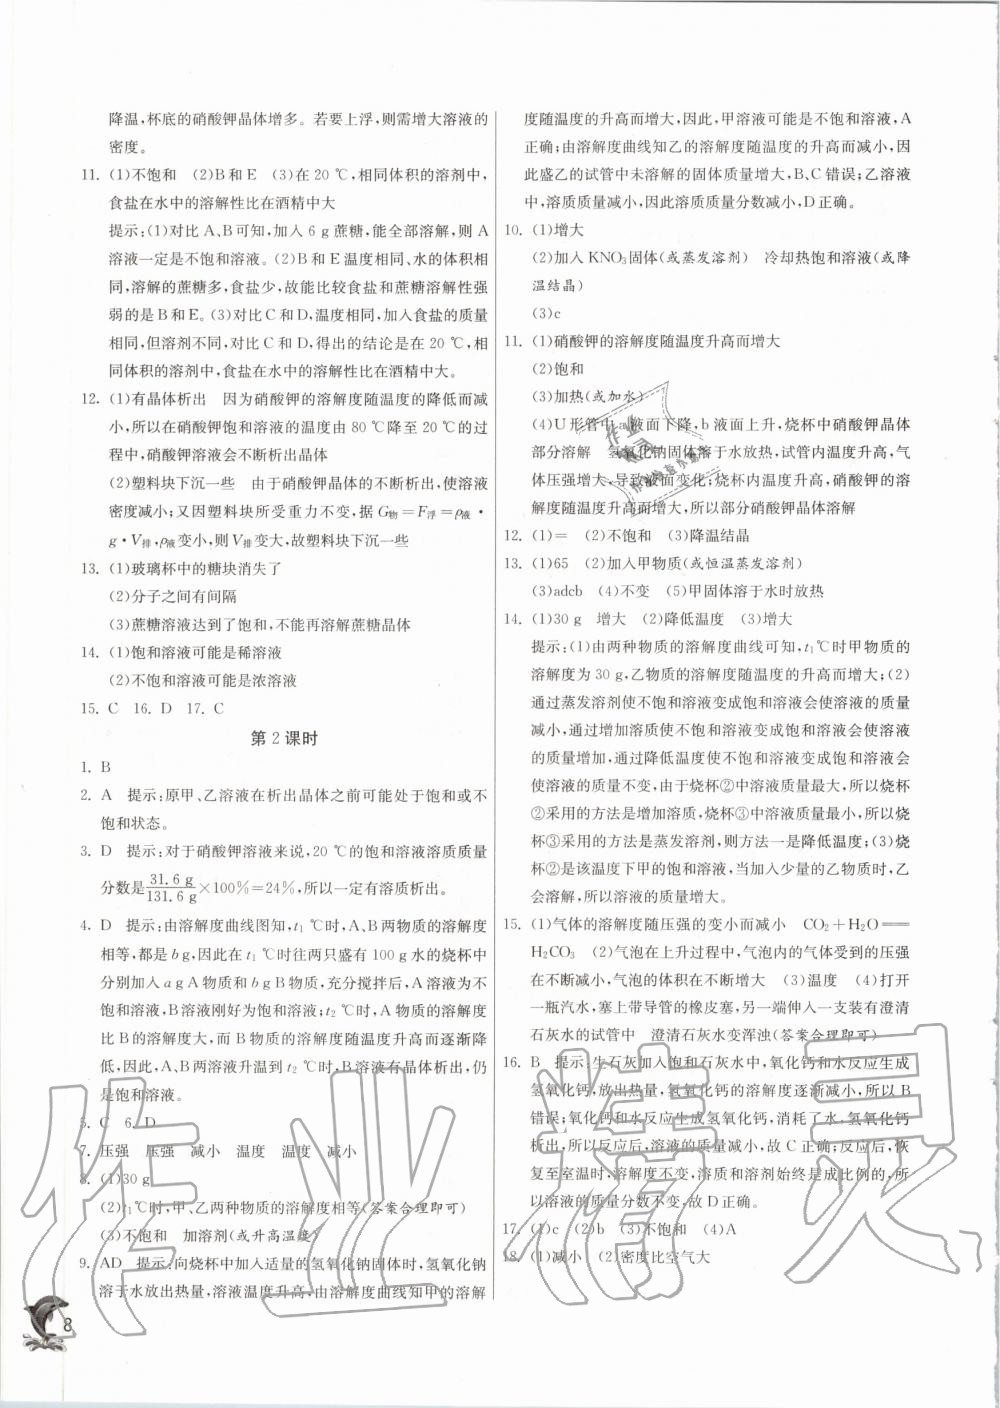 降温,杯底的硝酸钾晶体增多。若要上浮,则需增大溶液的
密度。
11. (1)不饱和 (2)B和E (3)在20 ℃,相同体积的溶剂中,
食盐在水中的溶解性比在酒精中大
提示:(1)对比A、B可知,加入6 g蔗糖,能全部溶解,则A
溶液一定是不饱和溶液。(2)B和E温度相同、水的体积相
同,溶解的蔗糖多,食盐少,故能比较食盐和蔗糖溶解性强
弱的是B和E。(3)对比C和D,温度相同,加入食盐的质量
相同,但溶剂不同,对比C和D,得出的结论是在20 ℃,相
同体积的溶剂,食盐在水中的溶解性比在酒精中大。
12. (1)有晶体析出 因为硝酸钾的溶解度随温度的降低而减
小,所以在硝酸钾饱和溶液的温度由80 ℃降至20 ℃的过
程中,硝酸钾溶液会不断析出晶体
(2)塑料块下沉一些 由于硝酸钾晶体的不断析出,使溶液
密度减小;又因塑料块所受重力不变,据G物=F浮=ρ液·
g·V排,ρ液变小,则V排变大,故塑料块下沉一些
13. (1)玻璃杯中的糖块消失了
(2)分子之间有间隔
(3)蔗糖溶液达到了饱和,不能再溶解蔗糖晶体
14. (1)饱和溶液可能是稀溶液
(2)不饱和溶液可能是浓溶液
15. C 16. D 17. C
第2课时
1. B
2. A 提示:原甲、乙溶液在析出晶体之前可能处于饱和或不
饱和状态。
3. D 提示:对于硝酸钾溶液来说,20 ℃的饱和溶液溶质质量
分数是31.6 g/131.6 g×100%=24%,所以一定有溶质析出。
4. D 提示:由溶解度曲线图知,t1 ℃时,A、B两物质的溶解度
相等,都是b g,因此在t1 ℃时往两只盛有100 g水的烧杯中
分别加入a g A物质和b g B物质,充分搅拌后,A溶液为不
饱和溶液,B溶液刚好为饱和溶液;t2 ℃时,A物质的溶解度
比B的溶解度大,而B物质的溶解度随温度升高而逐渐降
低,因此,A、B两溶液升温到t2 ℃时,B溶液有晶体析出,仍
是饱和溶液。
5. C 6. D
7. 压强 压强 减小 温度 温度 减小
8. (1)30 g
(2)t1℃时,甲、乙两种物质的溶解度相等(答案合理即可)
(3)不饱和 加溶剂(或升高温度)
9. AD 提示:向烧杯中加入适量的氢氧化钠固体时,氢氧化钠
溶于水放出热量,溶液温度升高,由溶解度曲线知甲的溶解
度随温度的升高而增大,因此,甲溶液可能是不饱和溶液,A
正确;由溶解度曲线知乙的溶解度随温度的升高而减小,因
此盛乙的试管中未溶解的固体质量增大,B、C错误;乙溶液
中,溶质质量减小,因此溶质质量分数减小,D正确。
10. (1)增大
(2)加入KNO3固体(或蒸发溶剂) 冷却热饱和溶液(或降
温结晶)
(3)c
11. (1)硝酸钾的溶解度随温度升高而增大
(2)饱和
(3)加热(或加水)
(4)U形管中a液面下降,b液面上升,烧杯中硝酸钾晶体
部分溶解 氢氧化钠固体溶于水放热,试管内温度升高,气
体压强增大,导致液面变化;烧杯内温度升高,硝酸钾的溶
解度随温度升高而增大,所以部分硝酸钾晶体溶解
12. (1)= (2)不饱和 (3)降温结晶
13. (1)65 (2)加入甲物质(或恒温蒸发溶剂)
(3)adcb (4)不变 (5)甲固体溶于水时放热
14. (1)30 g 增大 (2)降低温度 (3)增大
提示:(1)由两种物质的溶解度曲线可知,t1℃时甲物质的
溶解度为30 g,乙物质的溶解度随温度的升高而增大;(2)
通过蒸发溶剂使不饱和溶液变成饱和溶液会使溶液的质量
减小,通过增加溶质使不饱和溶液变成饱和溶液会使溶液
的质量增加,通过降低温度使不饱和溶液变成饱和溶液会
使溶液的质量不变,由于烧杯②中溶液质量最大,所以烧杯
②采用的方法是增加溶质,烧杯③中溶液质量最小,所以烧
杯③采用的方法是蒸发溶剂,则方法一是降低温度;(3)烧
杯②是该温度下甲的饱和溶液,当加入少量的乙物质时,乙
会溶解,所以溶液的质量增大。
15. (1)气体的溶解度随压强的变小而减小 CO2+H2O══
H2CO3 (2)气泡在上升过程中,气泡内的气体受到的压强
在不断减小,气泡的体积在不断增大 (3)温度 (4)打开
一瓶汽水,塞上带导管的橡皮塞,另一端伸入一支装有澄清
石灰水的试管中 澄清石灰水变浑浊(答案合理即可)
16. B 提示:生石灰加入饱和石灰水中,氧化钙和水反应生成
氢氧化钙,放出热量,氢氧化钙的溶解度逐渐减小,所以B
错误;氧化钙和水反应生成氢氧化钙,消耗了水,氢氧化钙
析出,所以反应后,溶液的质量减小,故C正确;反应后,恢
复至室温时,溶解度不变,溶质和溶剂始终是成比例的,所
以溶液的质量分数不变,故D正确。
17. (1)c (2)b (3)不饱和 (4)A
18. (1)减小 (2)密度比空气大
8
作业精灵